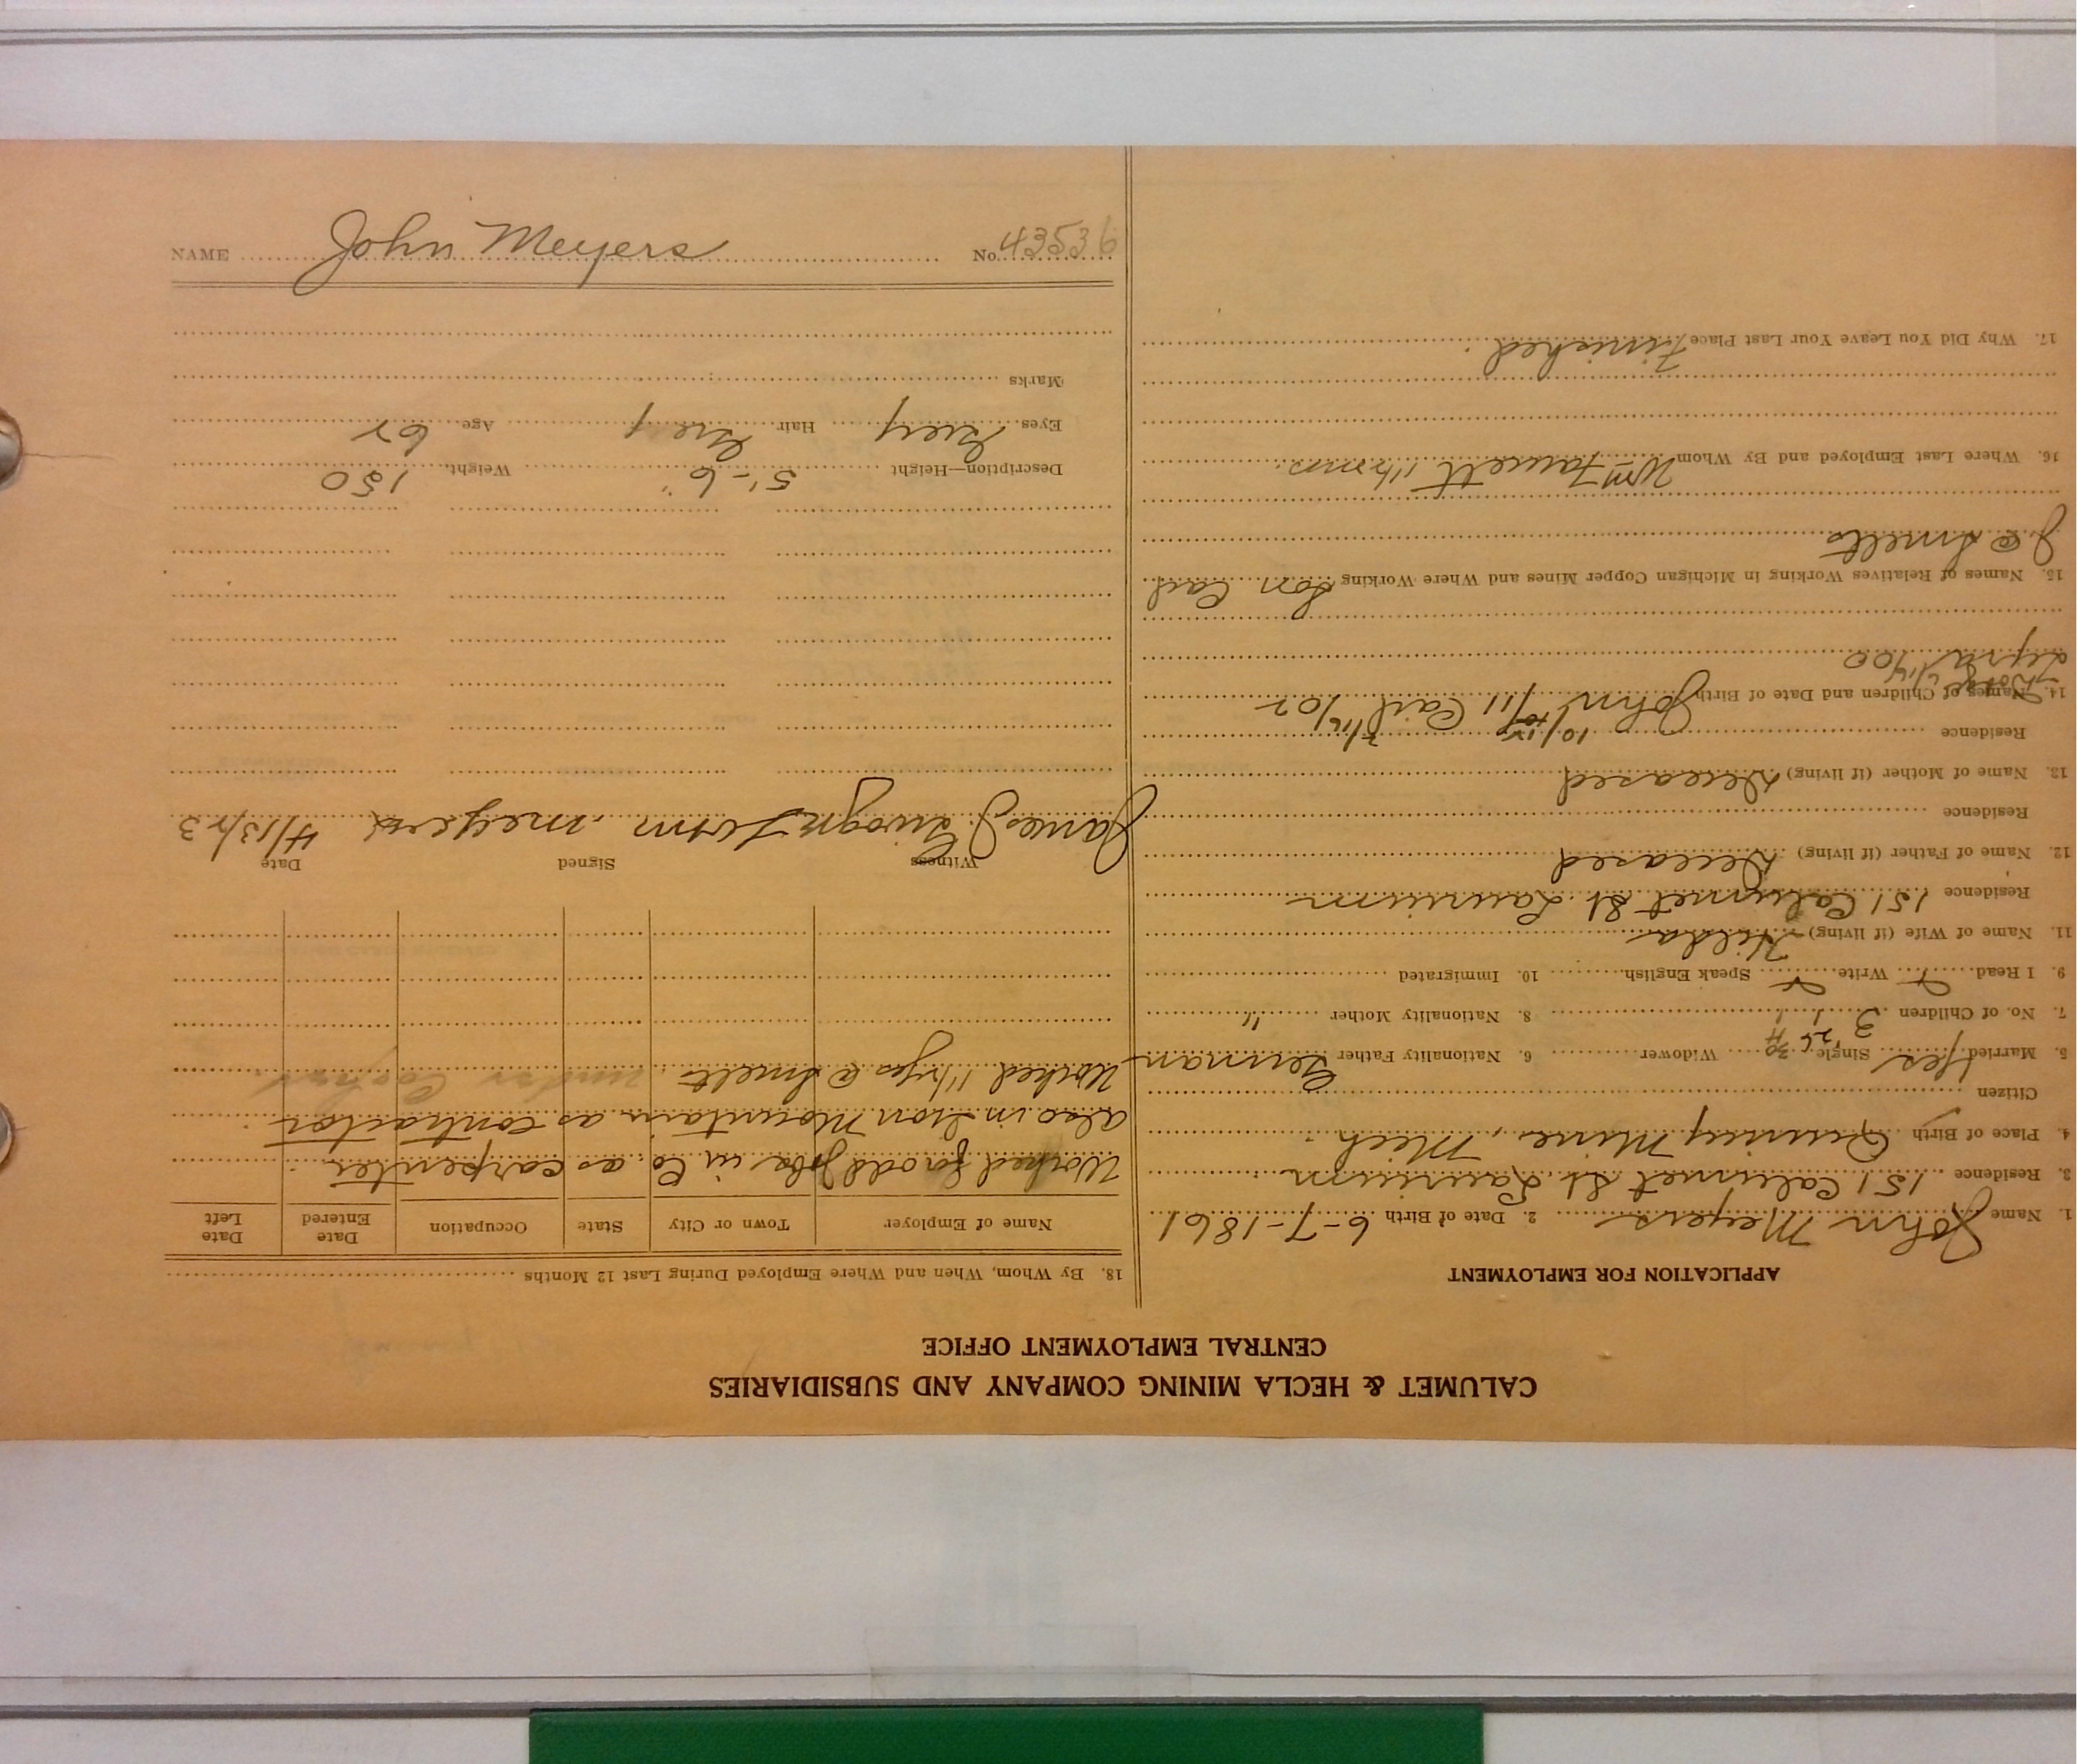 NAME John Meyers No. 43536
CALUMET & HECLA MINING COMPANY AND SUBSIDIARIES
CENTRAL EMPLOYMENT OFFICE
APPLICATION FOR EMPLOYMENT
1. Name John Meyers 2. Date of Birth 6-7-1861
3. Residence 151 Calumet St. Laurium
4. Place of Birth Quincy Mine, Mich.
Citizen
5. Married Yes Single Widower 6. Nationality Father German
7. No. of Children 3 8. Nationality Mother "
9. I Read Write Speak English 10. Immigrated
11. Name of Wife (if living) Hilda
Residence 151 Calumet St. Laurium
12. Name of Father (if living) Deceased
Residence
13. Name of Mother (if living) Deceased
Residence
14. Names of Children and Date of Birth John 11 Carl 02
15. Names of Relatives Working in Michigan Copper Mines and Where Working Son Carl
@ Smelts
16. Where Last Employed and By Whom Wm Faucett
17. Why Did You Leave Your Last Place Finished.
18. By Whom, When and Where Employed During Last 12 Months
Name of Employer Town or City State Occupation Date Entered Date Left
Worked for odd jobs in Co. as carpenter.
also in Iron Mountain as contractor.
Worked @ Smelts
Witness Signed Date
James J. John meyers 4/13/23
Description—Height 5'-6" Weight 150
Eyes Grey Hair Grey Age 62
Marks